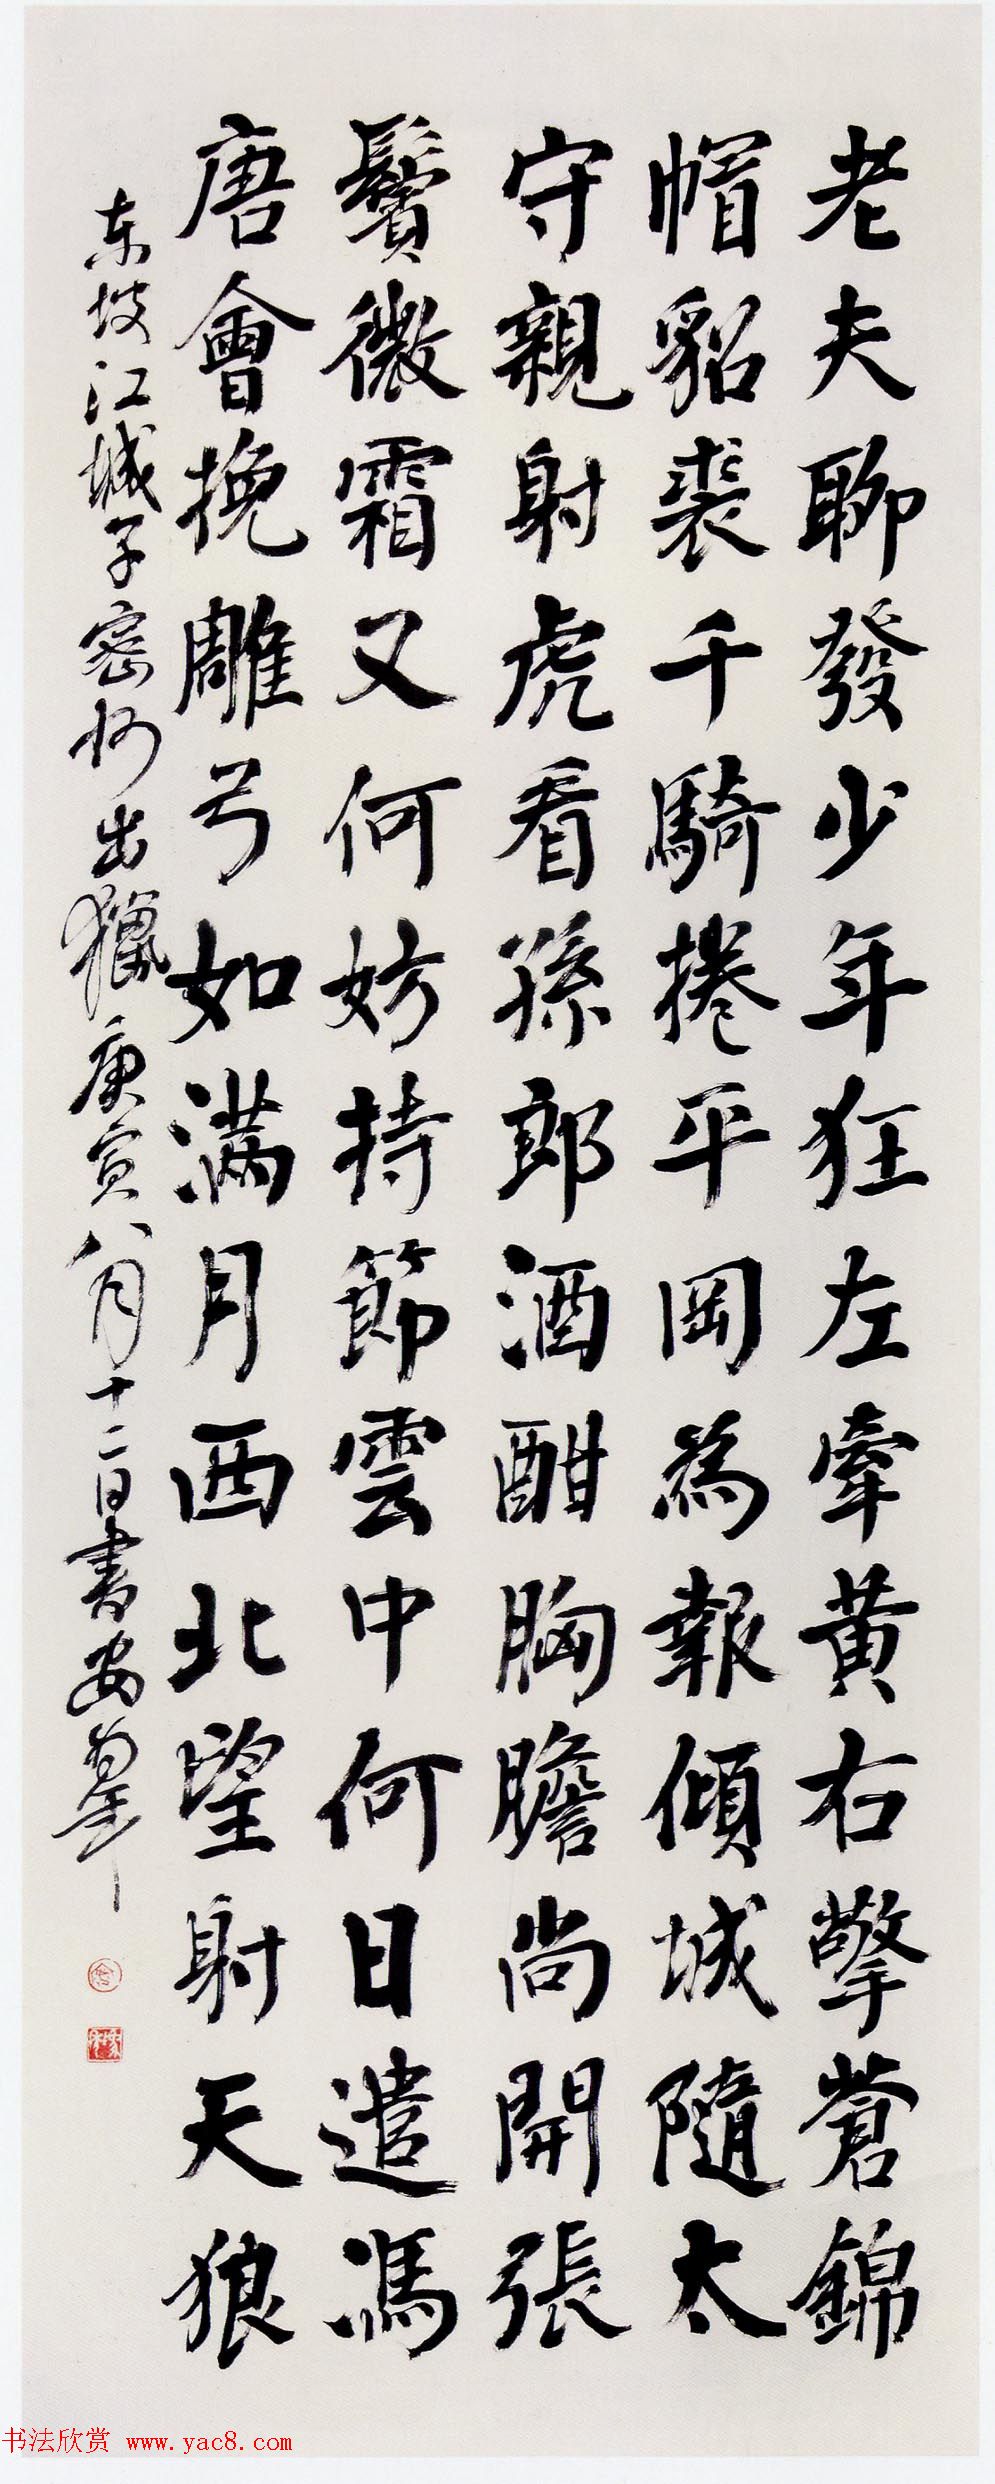 老夫聊發少年狂左牽黄右擎蒼錦
帽貂裘千騎捲平岡為報傾城隨太
守親射虎看孫郎酒酣胸膽尚開張
鬢微霜又何妨持節雲中何日遣馮
唐會挽雕弓如滿月西北望射天狼
东坡江城子密州出獵庚寅八月十二日書
书法欣赏 www.yac8.com